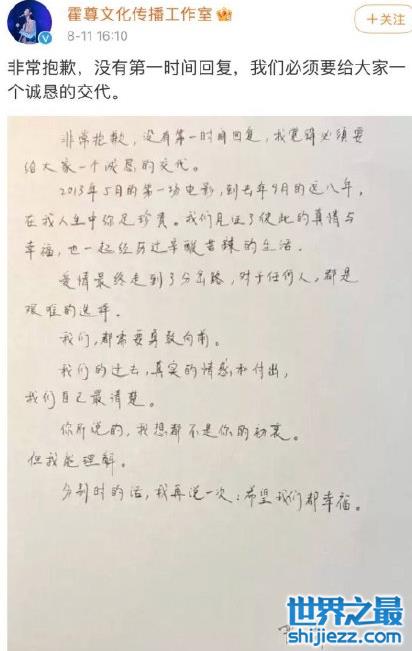 霍尊文化传播工作室
8-11 16:10
+关注
非常抱歉，没有第一时间回复，我们必须要给大家一
个诚恳的交代。
非常抱歉，没有第一时间回复，我觉得必须要
给大家一个诚恳的交代。
2013年5月的第一场电影，到去年9月的这八年，
在我人生中弥足珍贵。我们见证了彼此的真情与
幸福，也一起经历过辛酸苦辣的生活。
爱情最终走到了分岔路，对于任何人，都是
艰难的选择。
我们，都需要勇敢向前。
我们的过去，真实的情感和付出，
我们自己最清楚。
你所说的，我想都不是你的初衷。
但我能理解。
分别时的话，我再说一次：希望我们都幸福。
世界之最
shijiezz.com